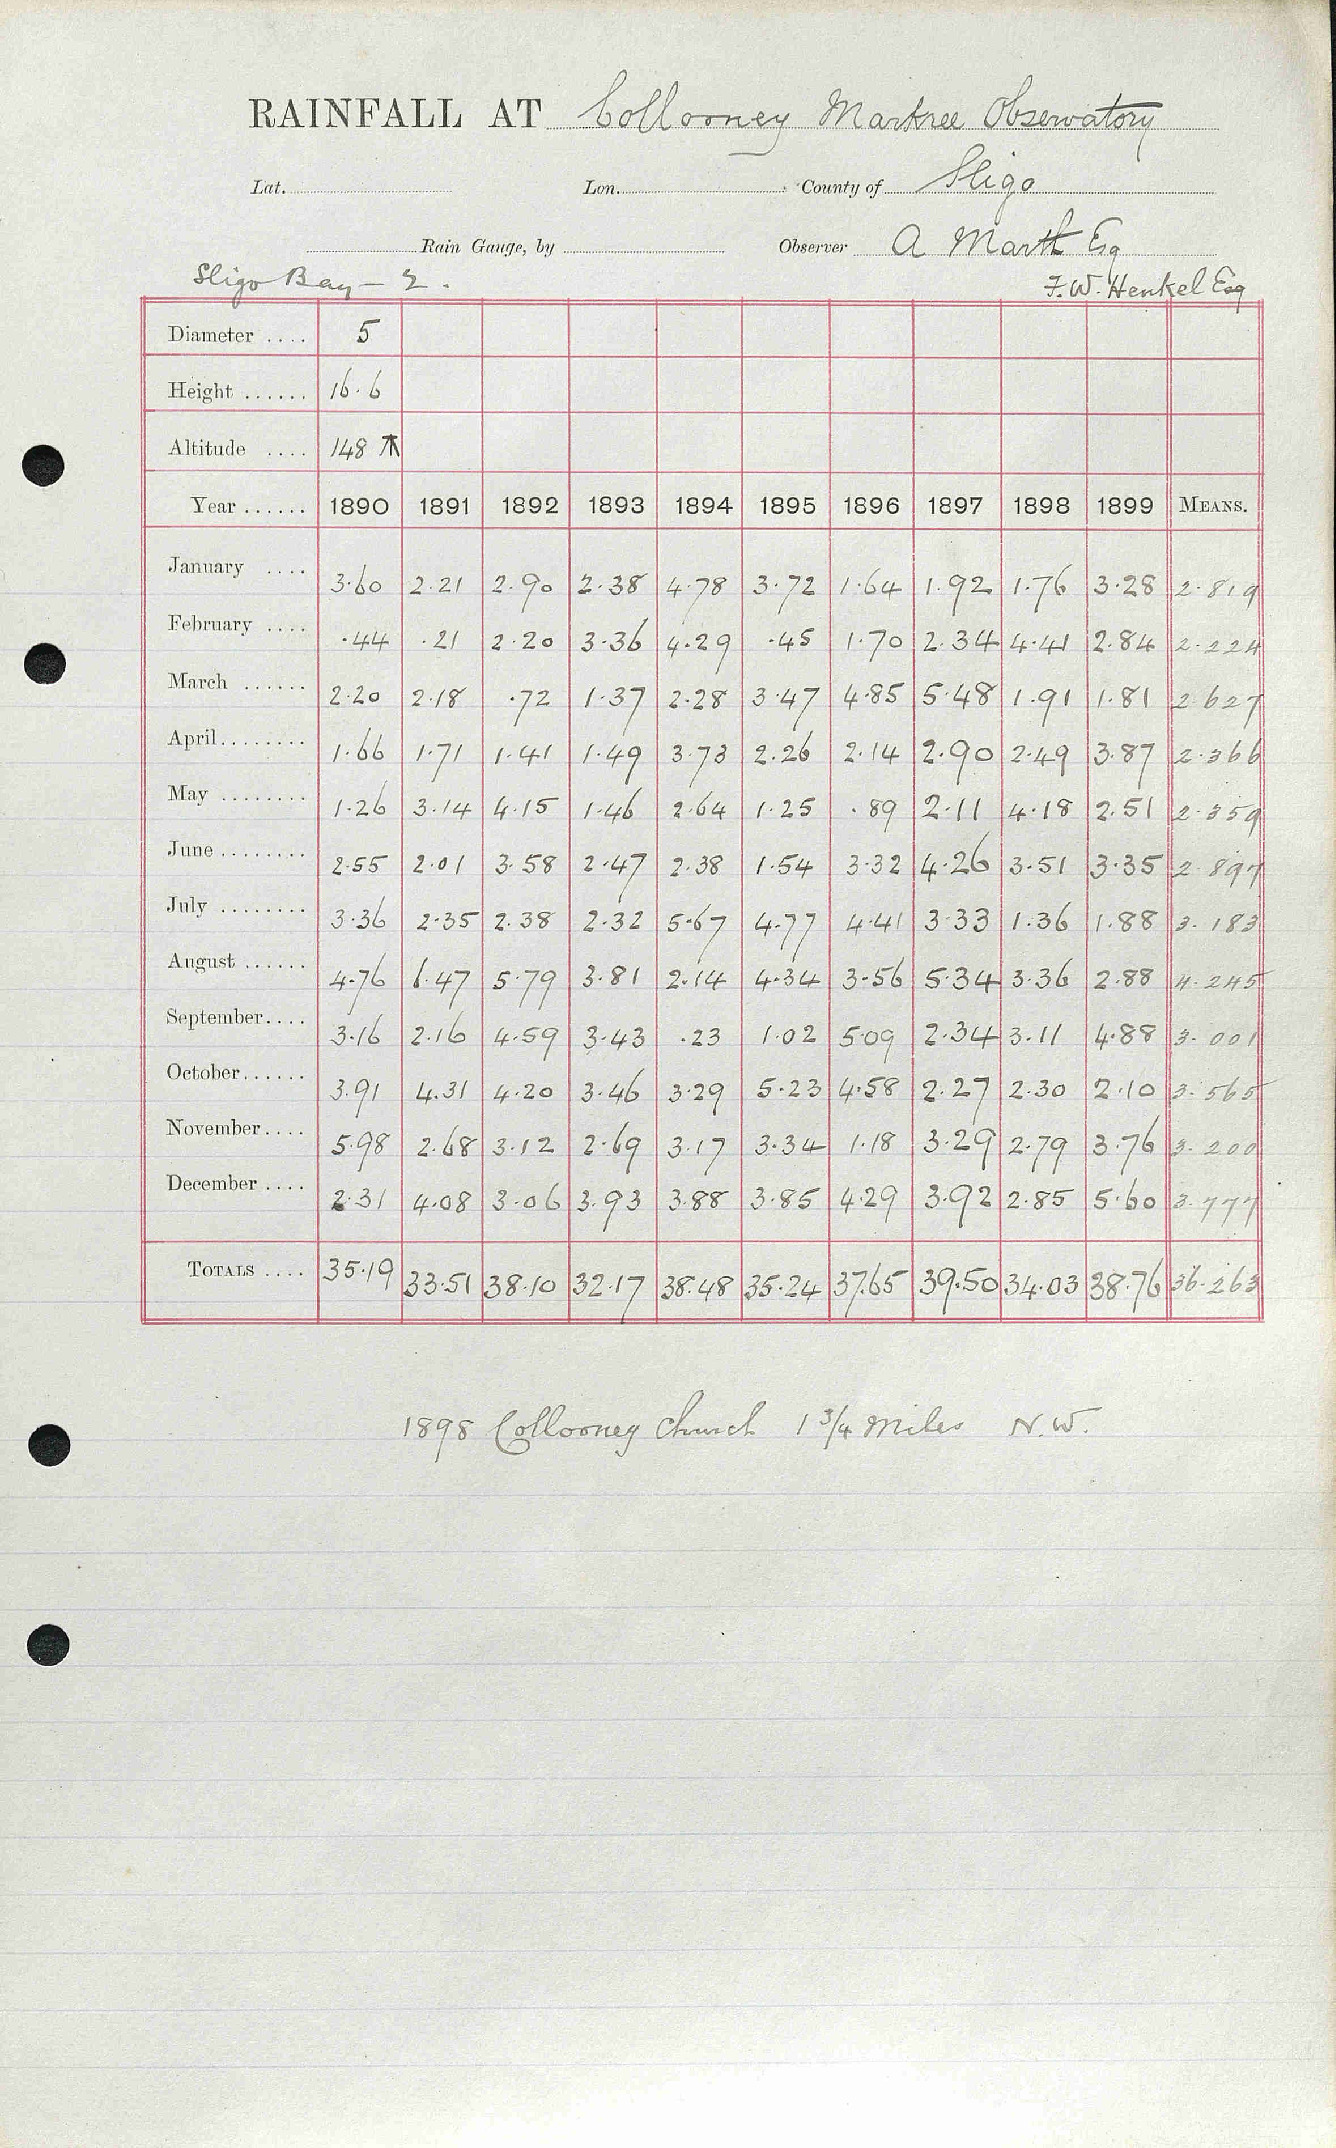 RAINFALL AT Collooney Markree Observatory
Lat. Lon. County of Sligo
Rain Gauge, by Observer A Marth Esq
Sligo Bay - 2. F.W. Henkel Esq
Diameter .... 5
Height ...... 16.6
Altitude .... 148
Year ...... 1890 1891 1892 1893 1894 1895 1896 1897 1898 1899 MEANS.
January .... 3.60 2.21 2.90 2.38 4.78 3.72 1.64 1.92 1.76 3.28 2.819
February .... .44 .21 2.20 3.36 4.29 .45 1.70 2.34 4.41 2.84 2.224
March ...... 2.20 2.18 .72 1.37 2.28 3.47 4.85 5.48 1.91 1.81 2.627
April........ 1.66 1.71 1.41 1.49 3.73 2.26 2.14 2.90 2.49 3.87 2.366
May ........ 1.26 3.14 4.15 1.46 2.64 1.25 .89 2.11 4.18 2.51 2.359
June ........ 2.55 2.01 3.58 2.47 2.38 1.54 3.32 4.26 3.51 3.35 2.897
July ........ 3.36 2.35 2.38 2.32 5.67 4.77 4.41 3.33 1.36 1.88 3.183
August ...... 4.76 6.47 5.79 3.81 2.14 4.34 3.56 5.34 3.36 2.88 4.245
September.... 3.16 2.16 4.59 3.43 .23 1.02 5.09 2.34 3.11 4.88 3.001
October...... 3.91 4.31 4.20 3.46 3.29 5.23 4.58 2.27 2.30 2.10 3.565
November.... 5.98 2.68 3.12 2.69 3.17 3.34 1.18 3.29 2.79 3.76 3.200
December .... 2.31 4.08 3.06 3.93 3.88 3.85 4.29 3.92 2.85 5.60 3.777
TOTALS .... 35.19 33.51 38.10 32.17 38.48 35.24 37.65 39.50 34.03 38.76 36.263
1898 Collooney Church 1 3/4 miles N.W.